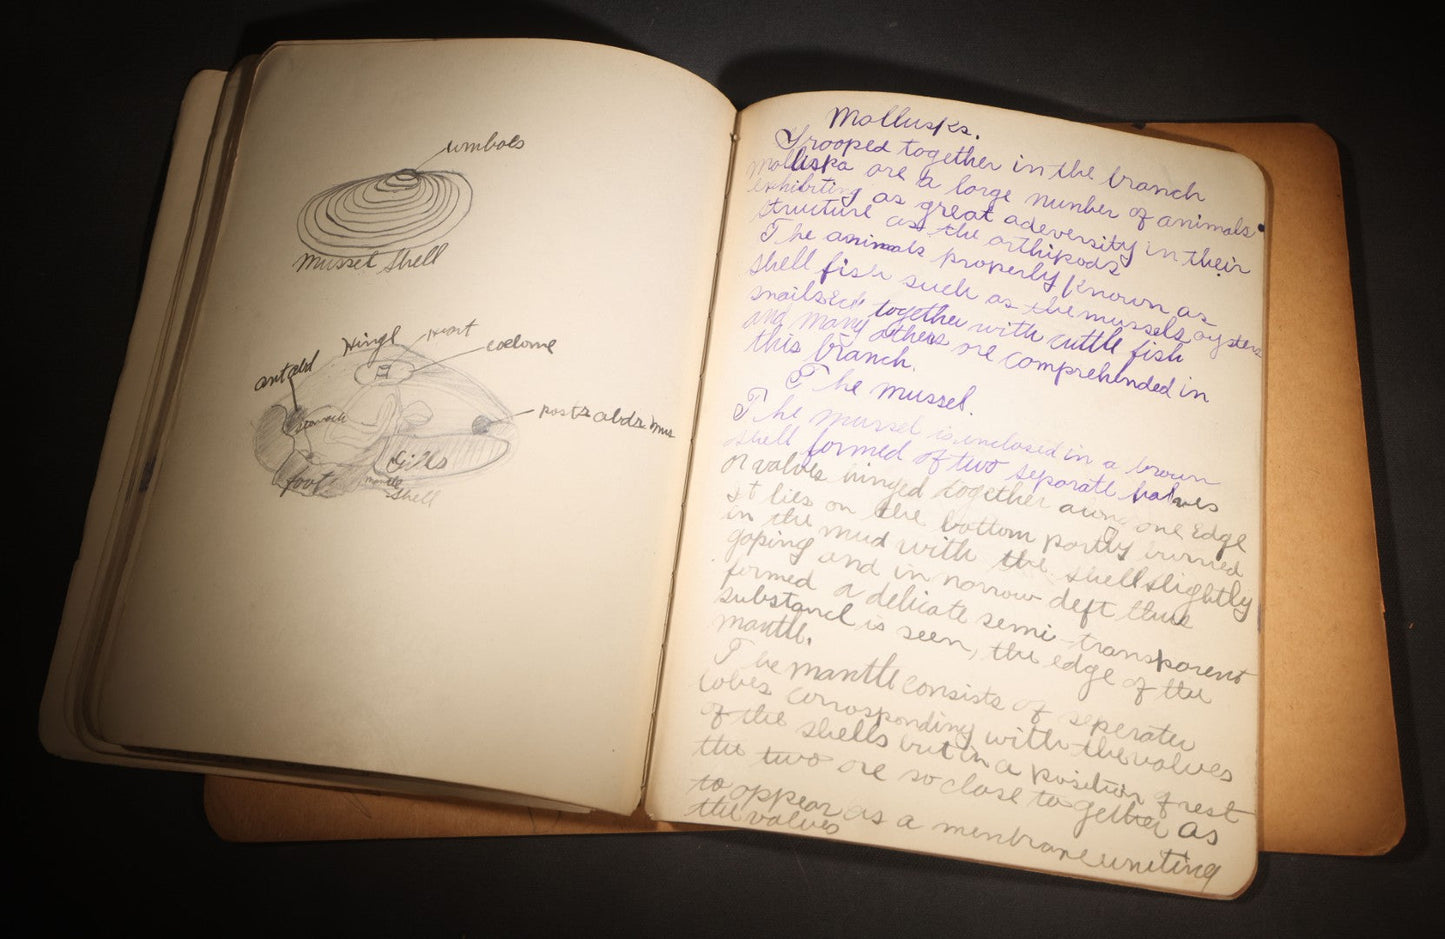 umboes
Mussel Shell
Hingl
Heart
coelome
ant abd
stomach
post abdr mus
Gills
foot
mantle
Shell
Mollusks.
Grooped together in the branch
molluspa are a large number of animals
exhibiting as great adeversity in their
structure as the orthipods
The animals properly known as
shell fish such as the mussels, oysters
snails &ct, together with cuttle fish
and many others are comprehended in
this branch.
The mussel.
The mussel is inclosed in a brown
shell formed of two separate halves
or valves hinged together along one Edge
It lies on the bottom partly burried
in the mud with the shell slightly
gaping and in narrow deft thus
formed a delicate semi-transparent
substance is seen, the edge of the
mantle.
The mantle consists of seperate
lobes corrosponding with the valves
of the shells but in a position of rest
the two are so close together as
to appear as a menbrane uniting
the valves